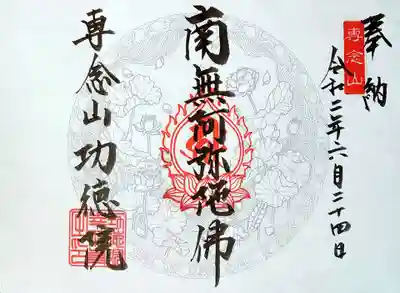 奉納
専念山
令和二年六月二十四日
南無阿弥陀佛
専念山功徳院